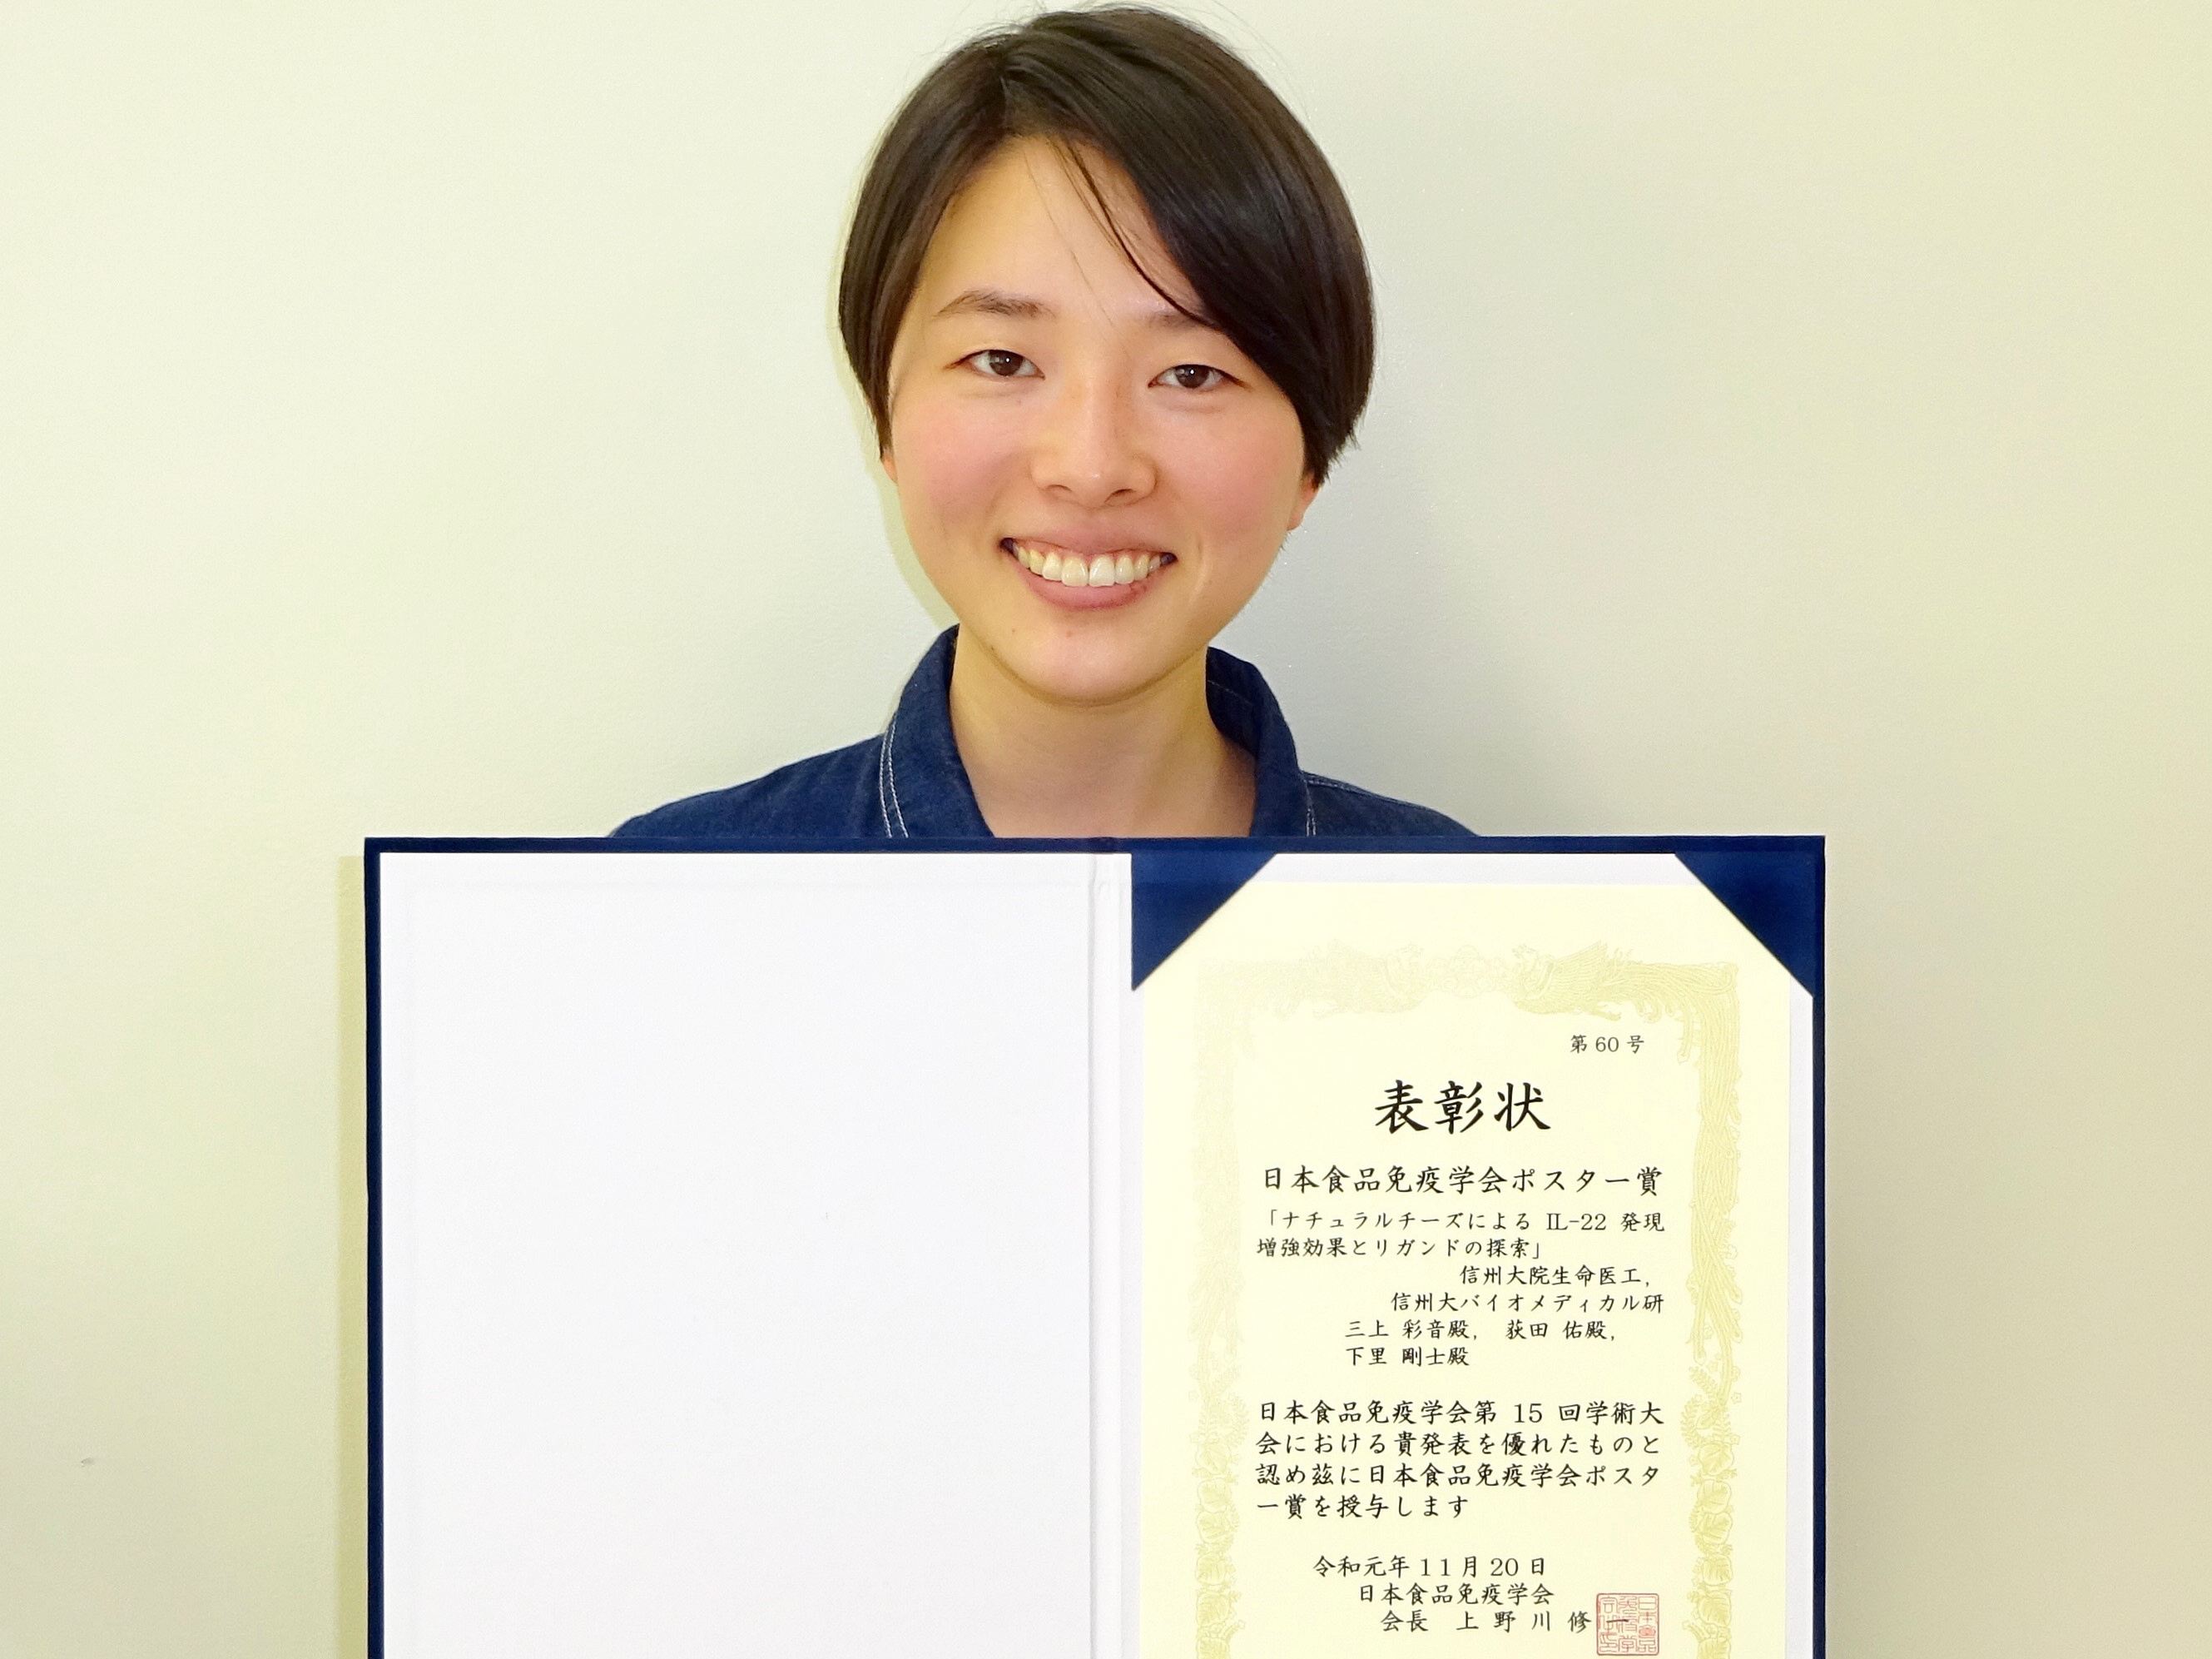 第60号
表彰状
日本食品免疫学会ポスター賞
「ナチュラルチーズによる IL-22 発現
増強効果とリガンドの探索」
信州大院生命医工,
信州大バイオメディカル研
三上 彩音殿, 荻田 佑殿,
下里 剛士殿
日本食品免疫学会第 15 回学術大
会における貴発表を優れたものと
認め茲に日本食品免疫学会ポスタ
ー賞を授与します
令和元年11月20日
日本食品免疫学会
会長 上野川修一